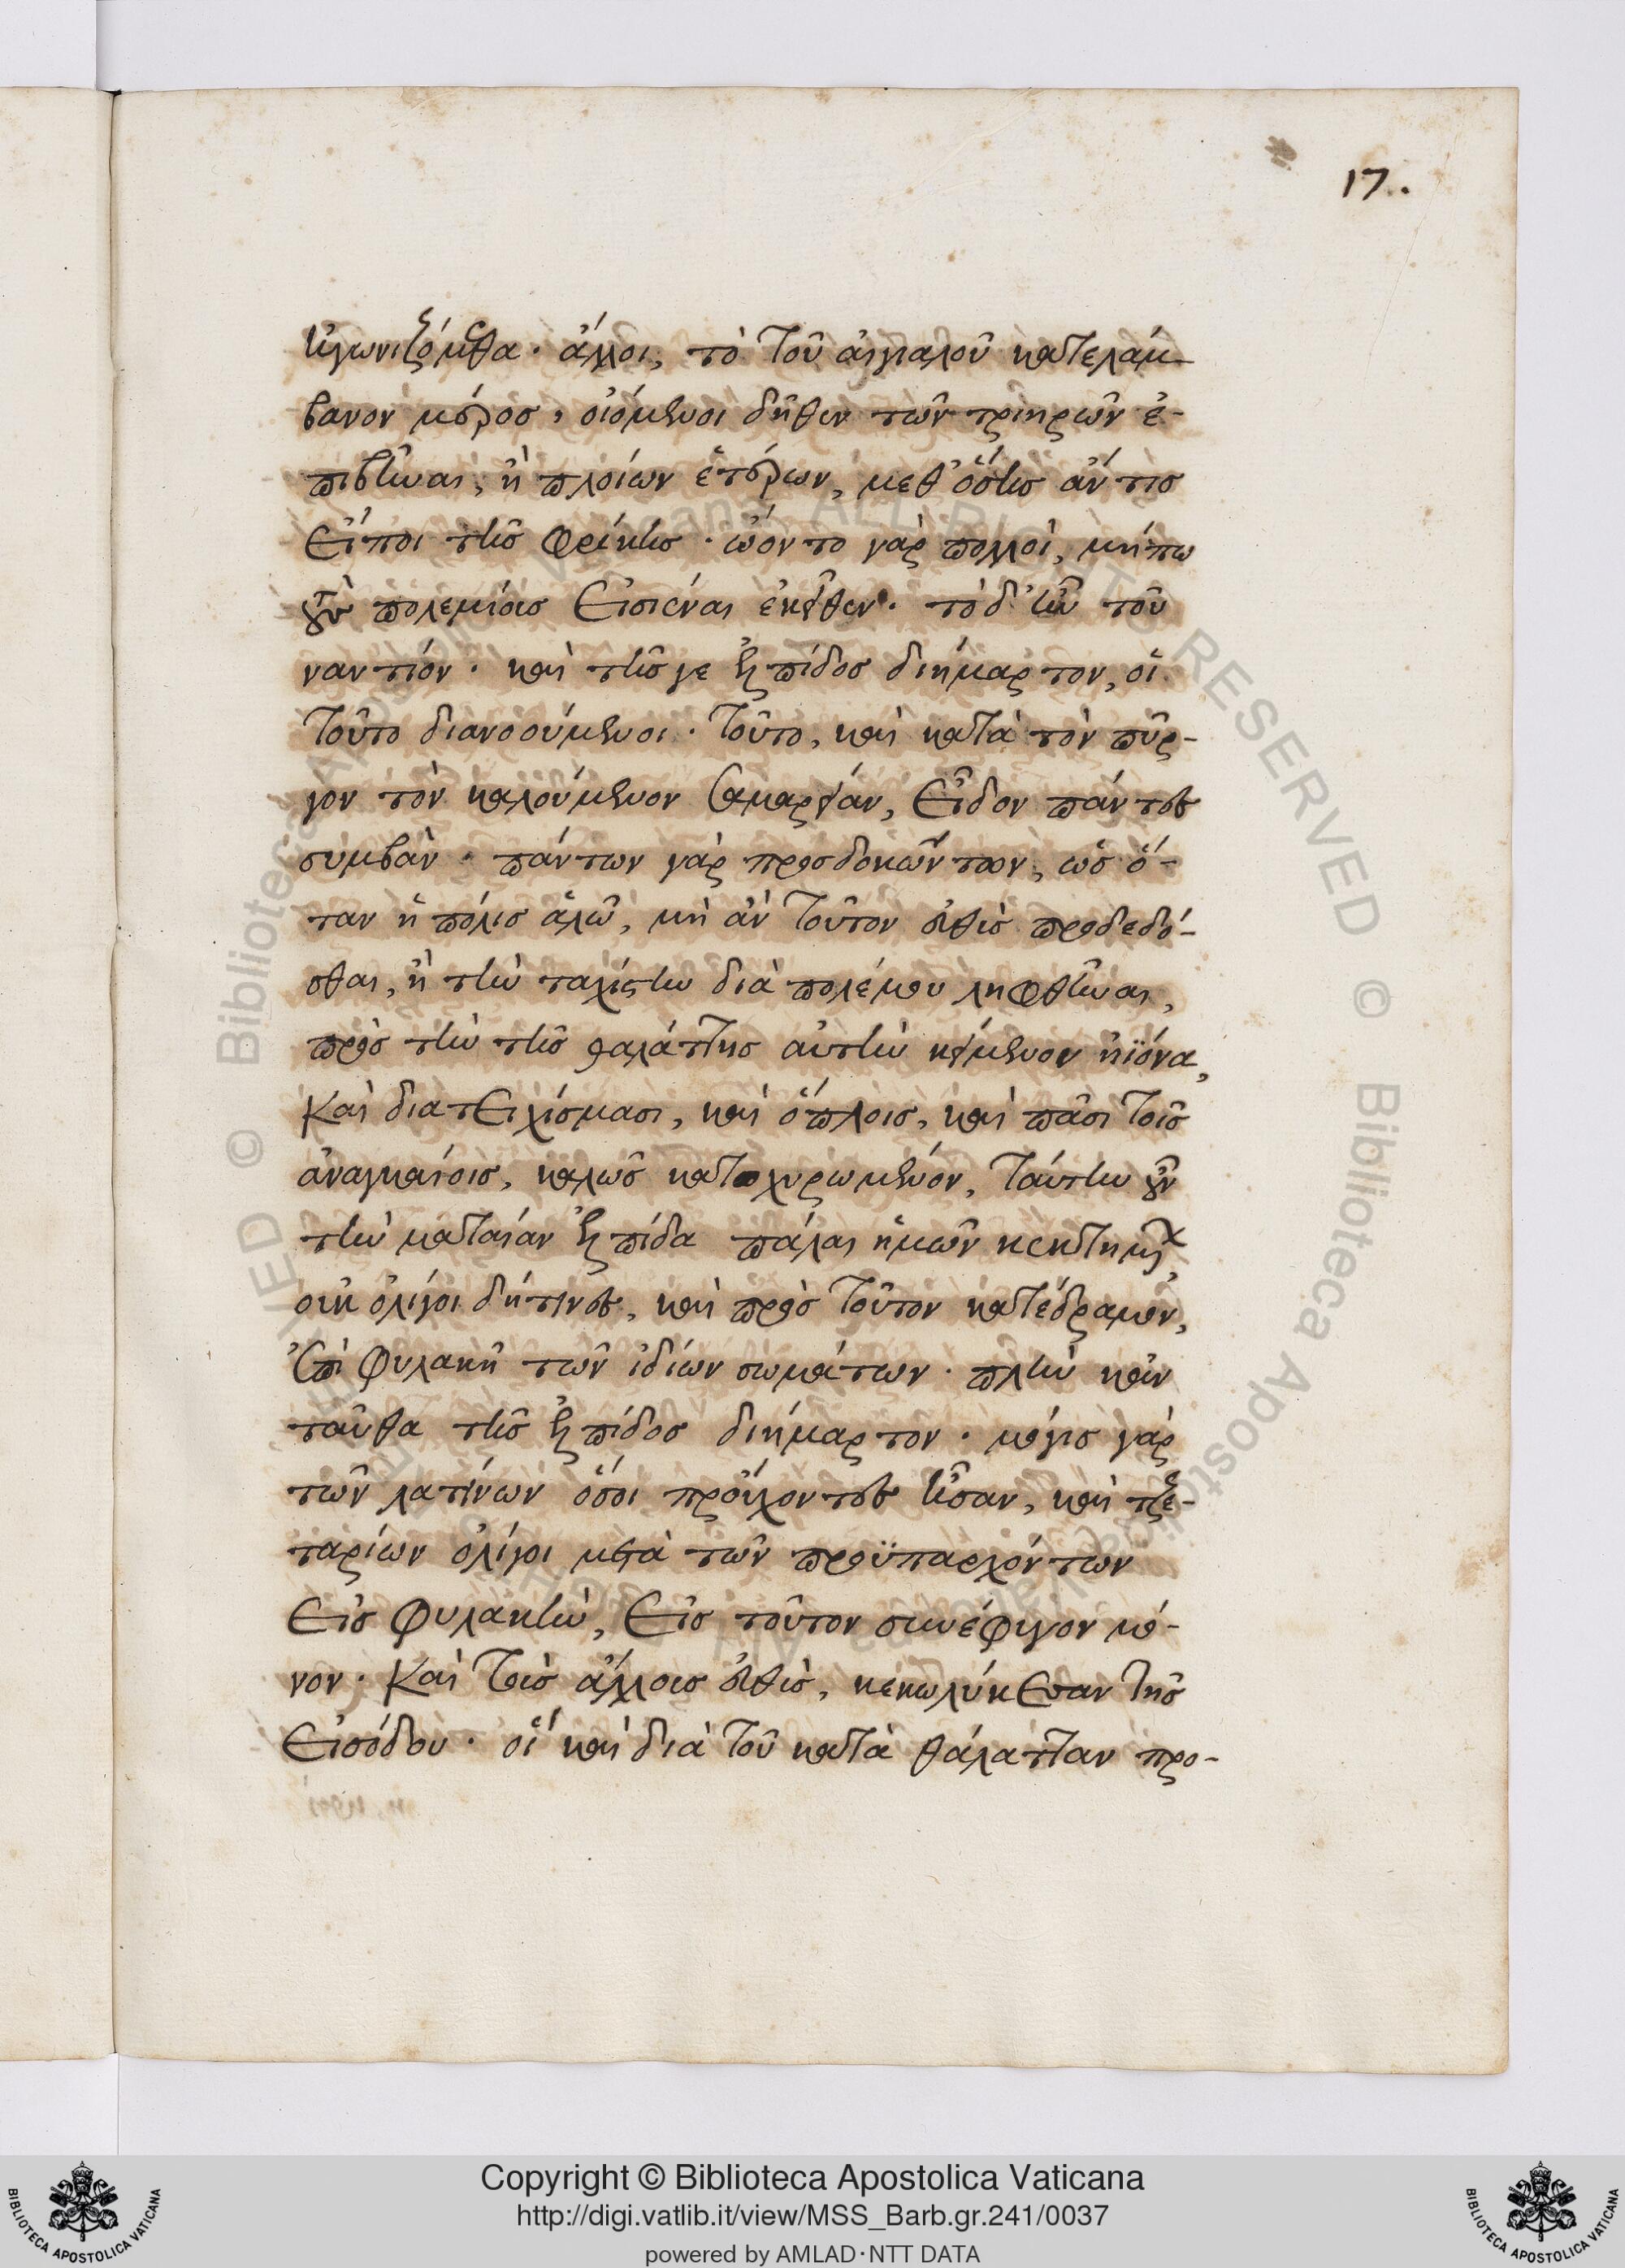 17.
ἠγωνιζόμεθα· ἄλλοι, τὸ τοῦ αἰγιαλοῦ κατελάμ-
βανον μέρος, οἰόμενοι δῆθεν τῶν τριηρῶν ἐ-
πιβῆναι, ἢ πλοίων ἑτέρων, μεθ' ὅσης ἄν τις
εἴποι τῆς φρίκης· ᾤοντο γὰρ πολλοὶ, μήπω
τοὺς πολεμίους εἰσιέναι ἐκεῖθεν· τὸ δ' ἦν τοὐ
ναντίον· καὶ τῆς γε ἐλπίδος διήμαρτον, οἱ
τοῦτο διανοούμενοι· τοῦτο, καὶ κατὰ τὸν πύρ-
γον τὸν καλούμενον Σαμαρείαν, εἶδον πάντες
συμβὰν· πάντων γὰρ προσδοκώντων, ὡς ὅ-
ταν ἡ πόλις ἁλῶ, μὴ ἂν τοῦτον εὐθὺς προδεδό-
σθαι, ἢ τὴν ταχίστην διὰ πολέμου ληφθῆναι,
πρὸς τὴν τῆς θαλάττης αὐτὴν κείμενον ἠϊόνα,
καὶ διατειχίσμασι, καὶ ὅπλοις, καὶ πᾶσι τοῖς
ἀναγκαίοις, καλῶς κατοχυρωμένον, ταύτην οὖν
τὴν ματαίαν ἐλπίδα πάλαι ἡμῶν κεκτημένων
οὐκ ὀλίγοι δήτινες, καὶ πρὸς τοῦτον κατέδραμον,
ἐπὶ φυλακῇ τῶν ἰδίων σωμάτων· πλὴν κἀν
ταῦθα τῆς ἐλπίδος διήμαρτον· μόγις γὰρ
τῶν λατίνων ὅσοι προὔχοντες ἦσαν, καὶ τζε-
ταρίων ὀλίγοι μετὰ τῶν προϋπαρχόντων
εἰς φυλακὴν, εἰς τοῦτον συνέφυγον μό-
νον· καὶ τοὺς ἄλλους εὐθὺς, κεκωλύκεσαν τῆς
εἰσόδου· οἳ καὶ διὰ τοῦ κατὰ θάλατταν προ-
Copyright © Biblioteca Apostolica Vaticana
http://digi.vatlib.it/view/MSS_Barb.gr.241/0037
powered by AMLAD·NTT DATA